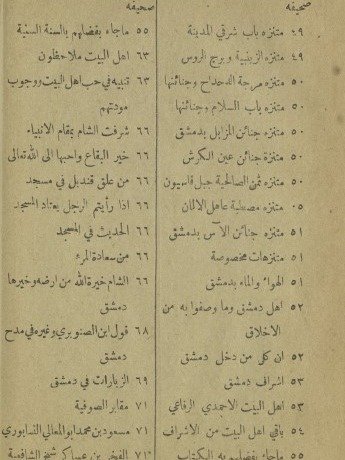 صحيفه
٤٩ متنزه باب شرقي المدينة
٤٩ متنزه الزينبية وبرج الروس
٥٠ متنزه مرجة الدحداح وجنائنها
٥٠ متنزه باب السلام وجنائنها
٥٠ متنزه جنائن المزابل بدمشق
٥٠ متنزه جنائن عين الكرش
٥٠ متنزه ثمن الصالحية جبل قاسيون
٥٠ متنزه مصطبة عاهل الالمان
٥١ متنزه جنائن الآس بدمشق
٥١ متنزهات مخصوصة
٥١ الهواء والماء بدمشق
٥٢ اهل دمشق وما وصفوا به من
الاخلاق
٥٢ ان كل من دخل دمشق
٥٣ اشراف دمشق
٥٣ اهل البيت الاحمدي الرفاعي
٥٤ باقي اهل البيت من الاشراف
٥٥ ماجاء بفضلهم به الكتاب
صحيفه
٥٥ ماجاء بفضلهم بالسنة السنية
٦٣ اهل البيت ملاحظون
٦٣ تنبيه في حب اهل البيت ووجوب
مودتهم
٦٦ شرفت الشام بمقام الانبياء
٦٦ خير البقاع واحبها الى الله تعالى
٦٦ من علق قنديل في مسجد
٦٦ اذا رأيتم الرجل يعتاد المسجد
٦٦ الحديث في المسجد
٦٦ من سعادة المرء
٦٦ الشام خيرة الله من ارضه وخيرها
دمشق
٦٨ قول ابن الصنوبري وغيره في مدح
دمشق
٦٩ الزيارات في دمشق
٧١ مقابر الصوفية
٧١ مسعود بن محمد ابو المعالي النيسابوري
٧١ الفخر بن عساكر شيخ الشافعية